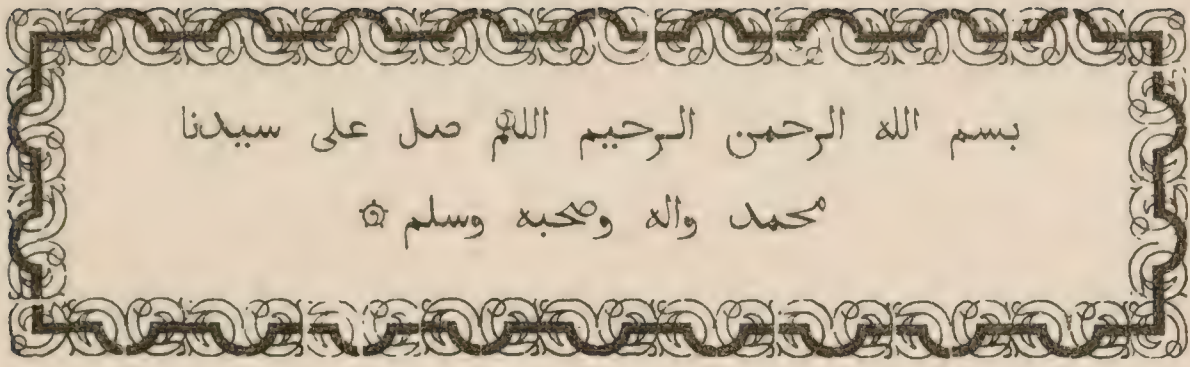 بسم الله الرحمن الرحيم اللهم صل على سيدنا
محمد واله وصحبه وسلم ۞